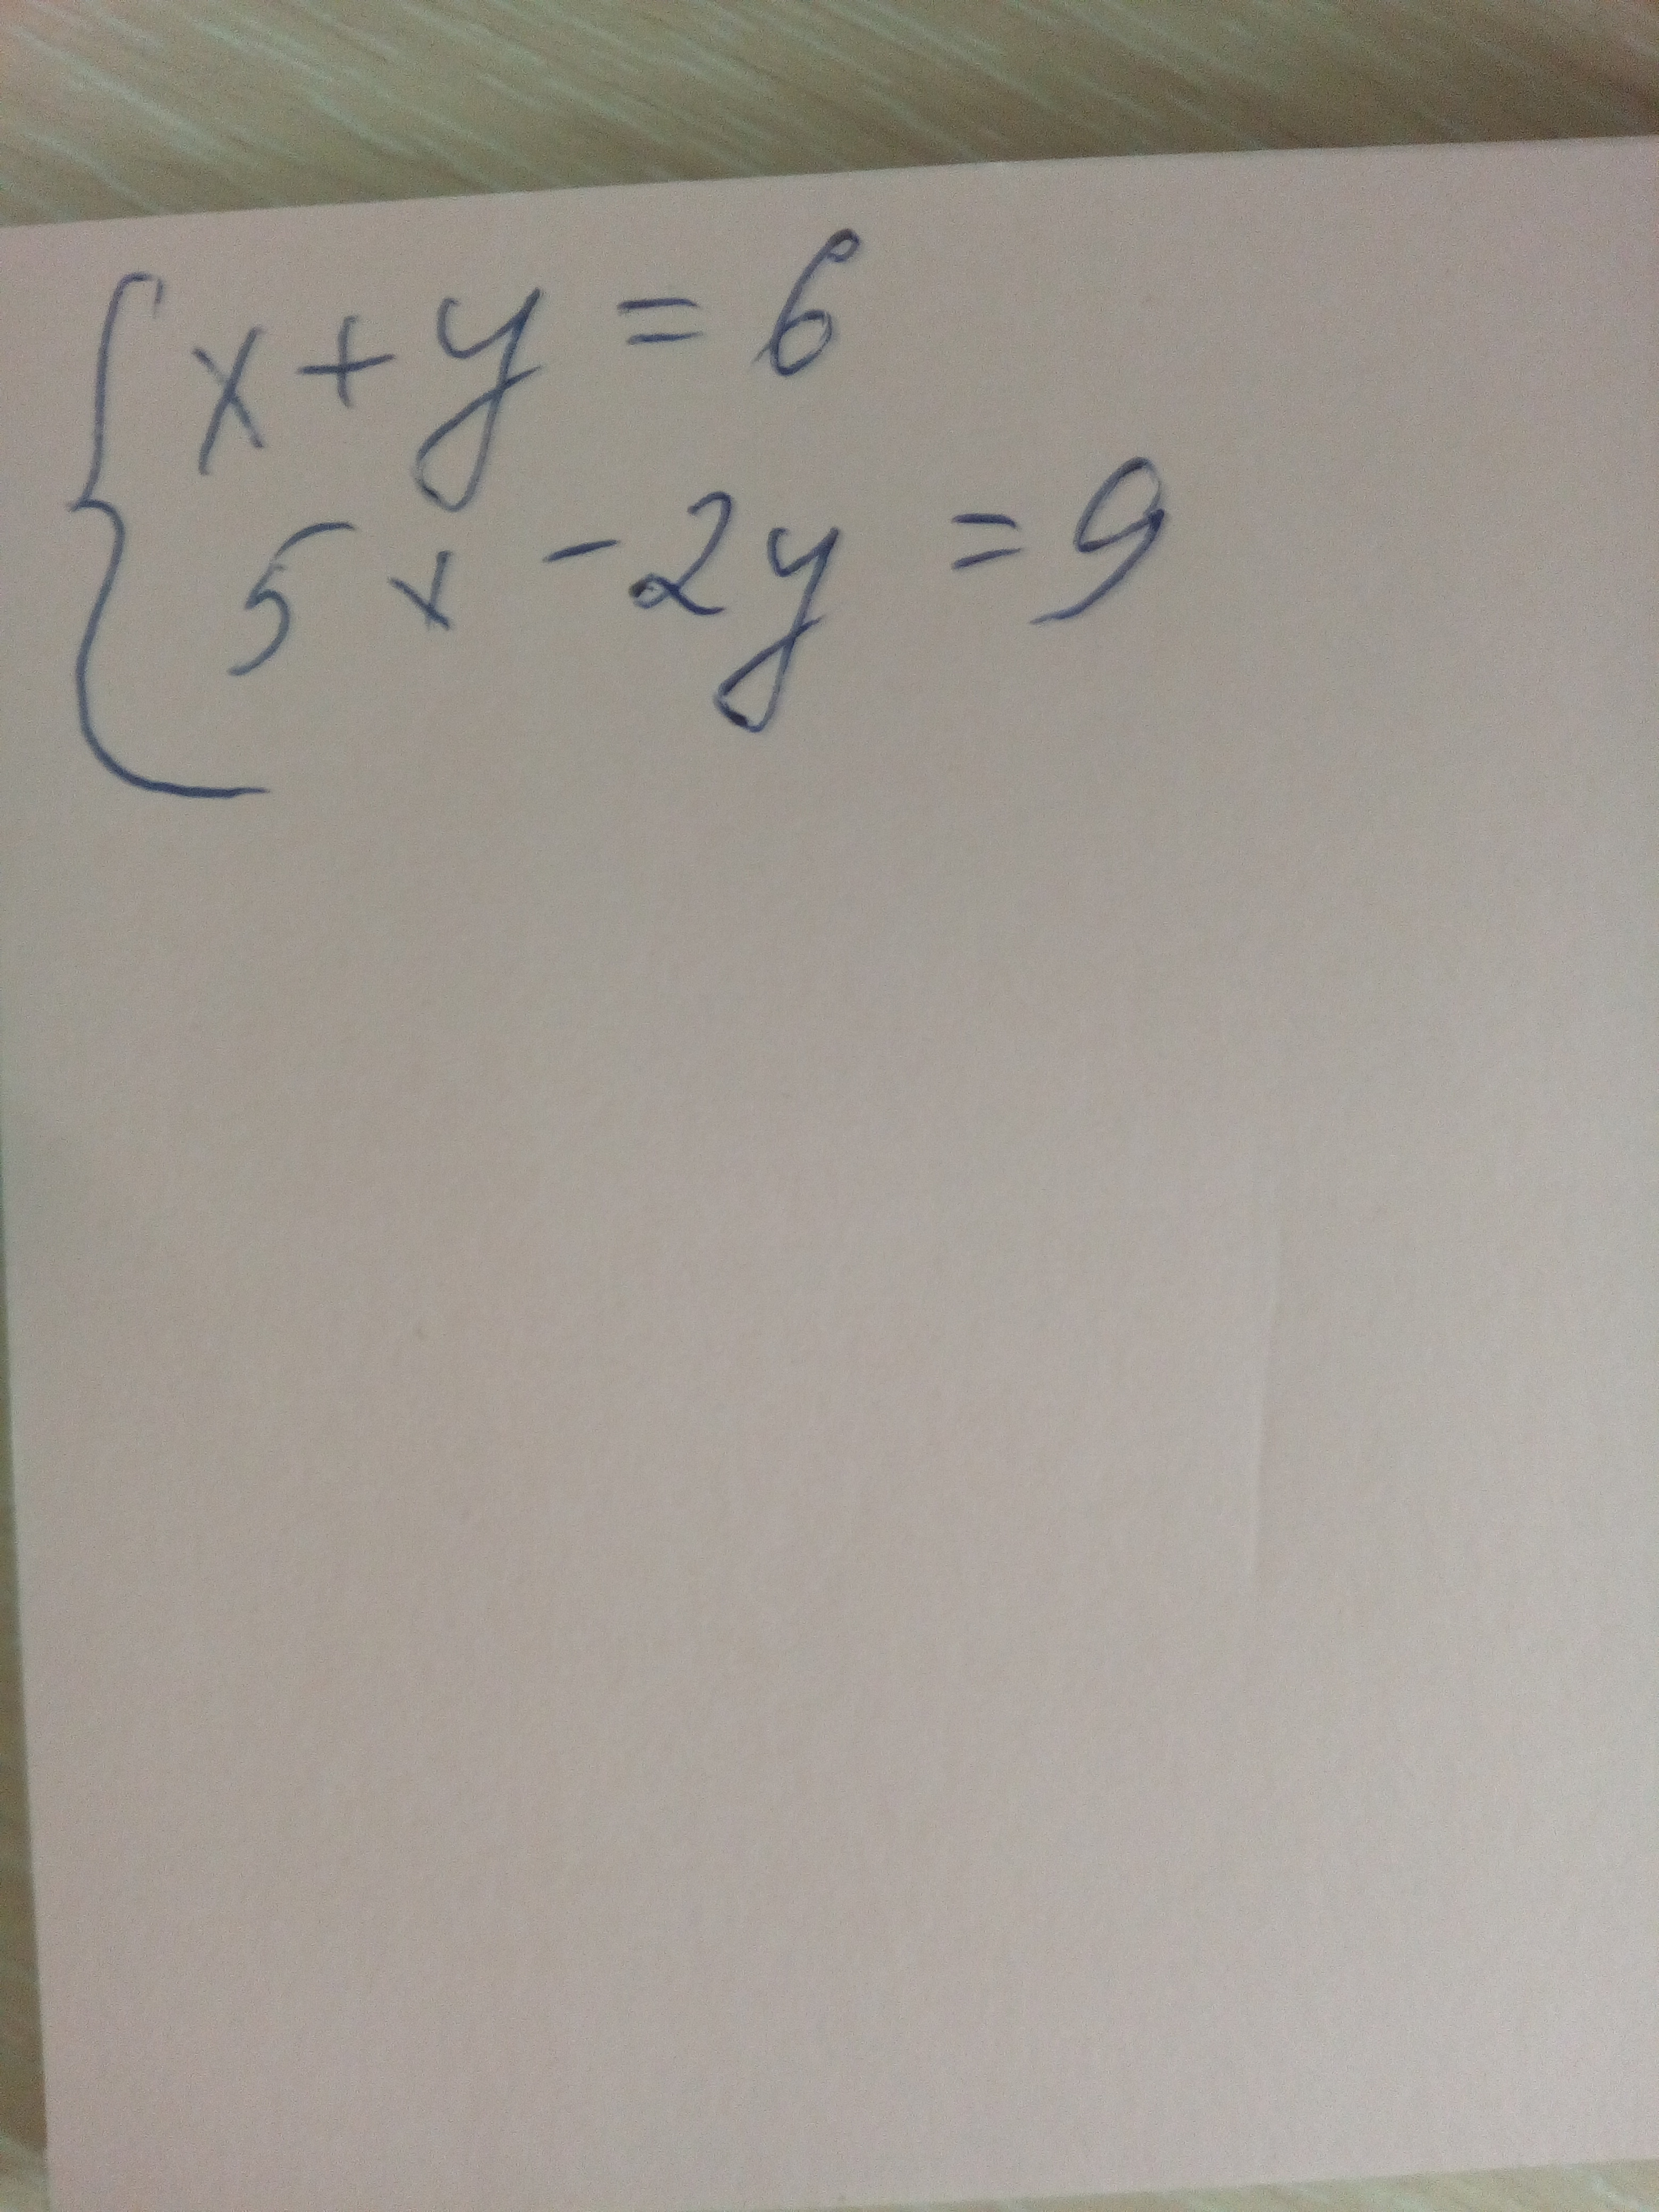 x + y = 6
5x - 2y = 9